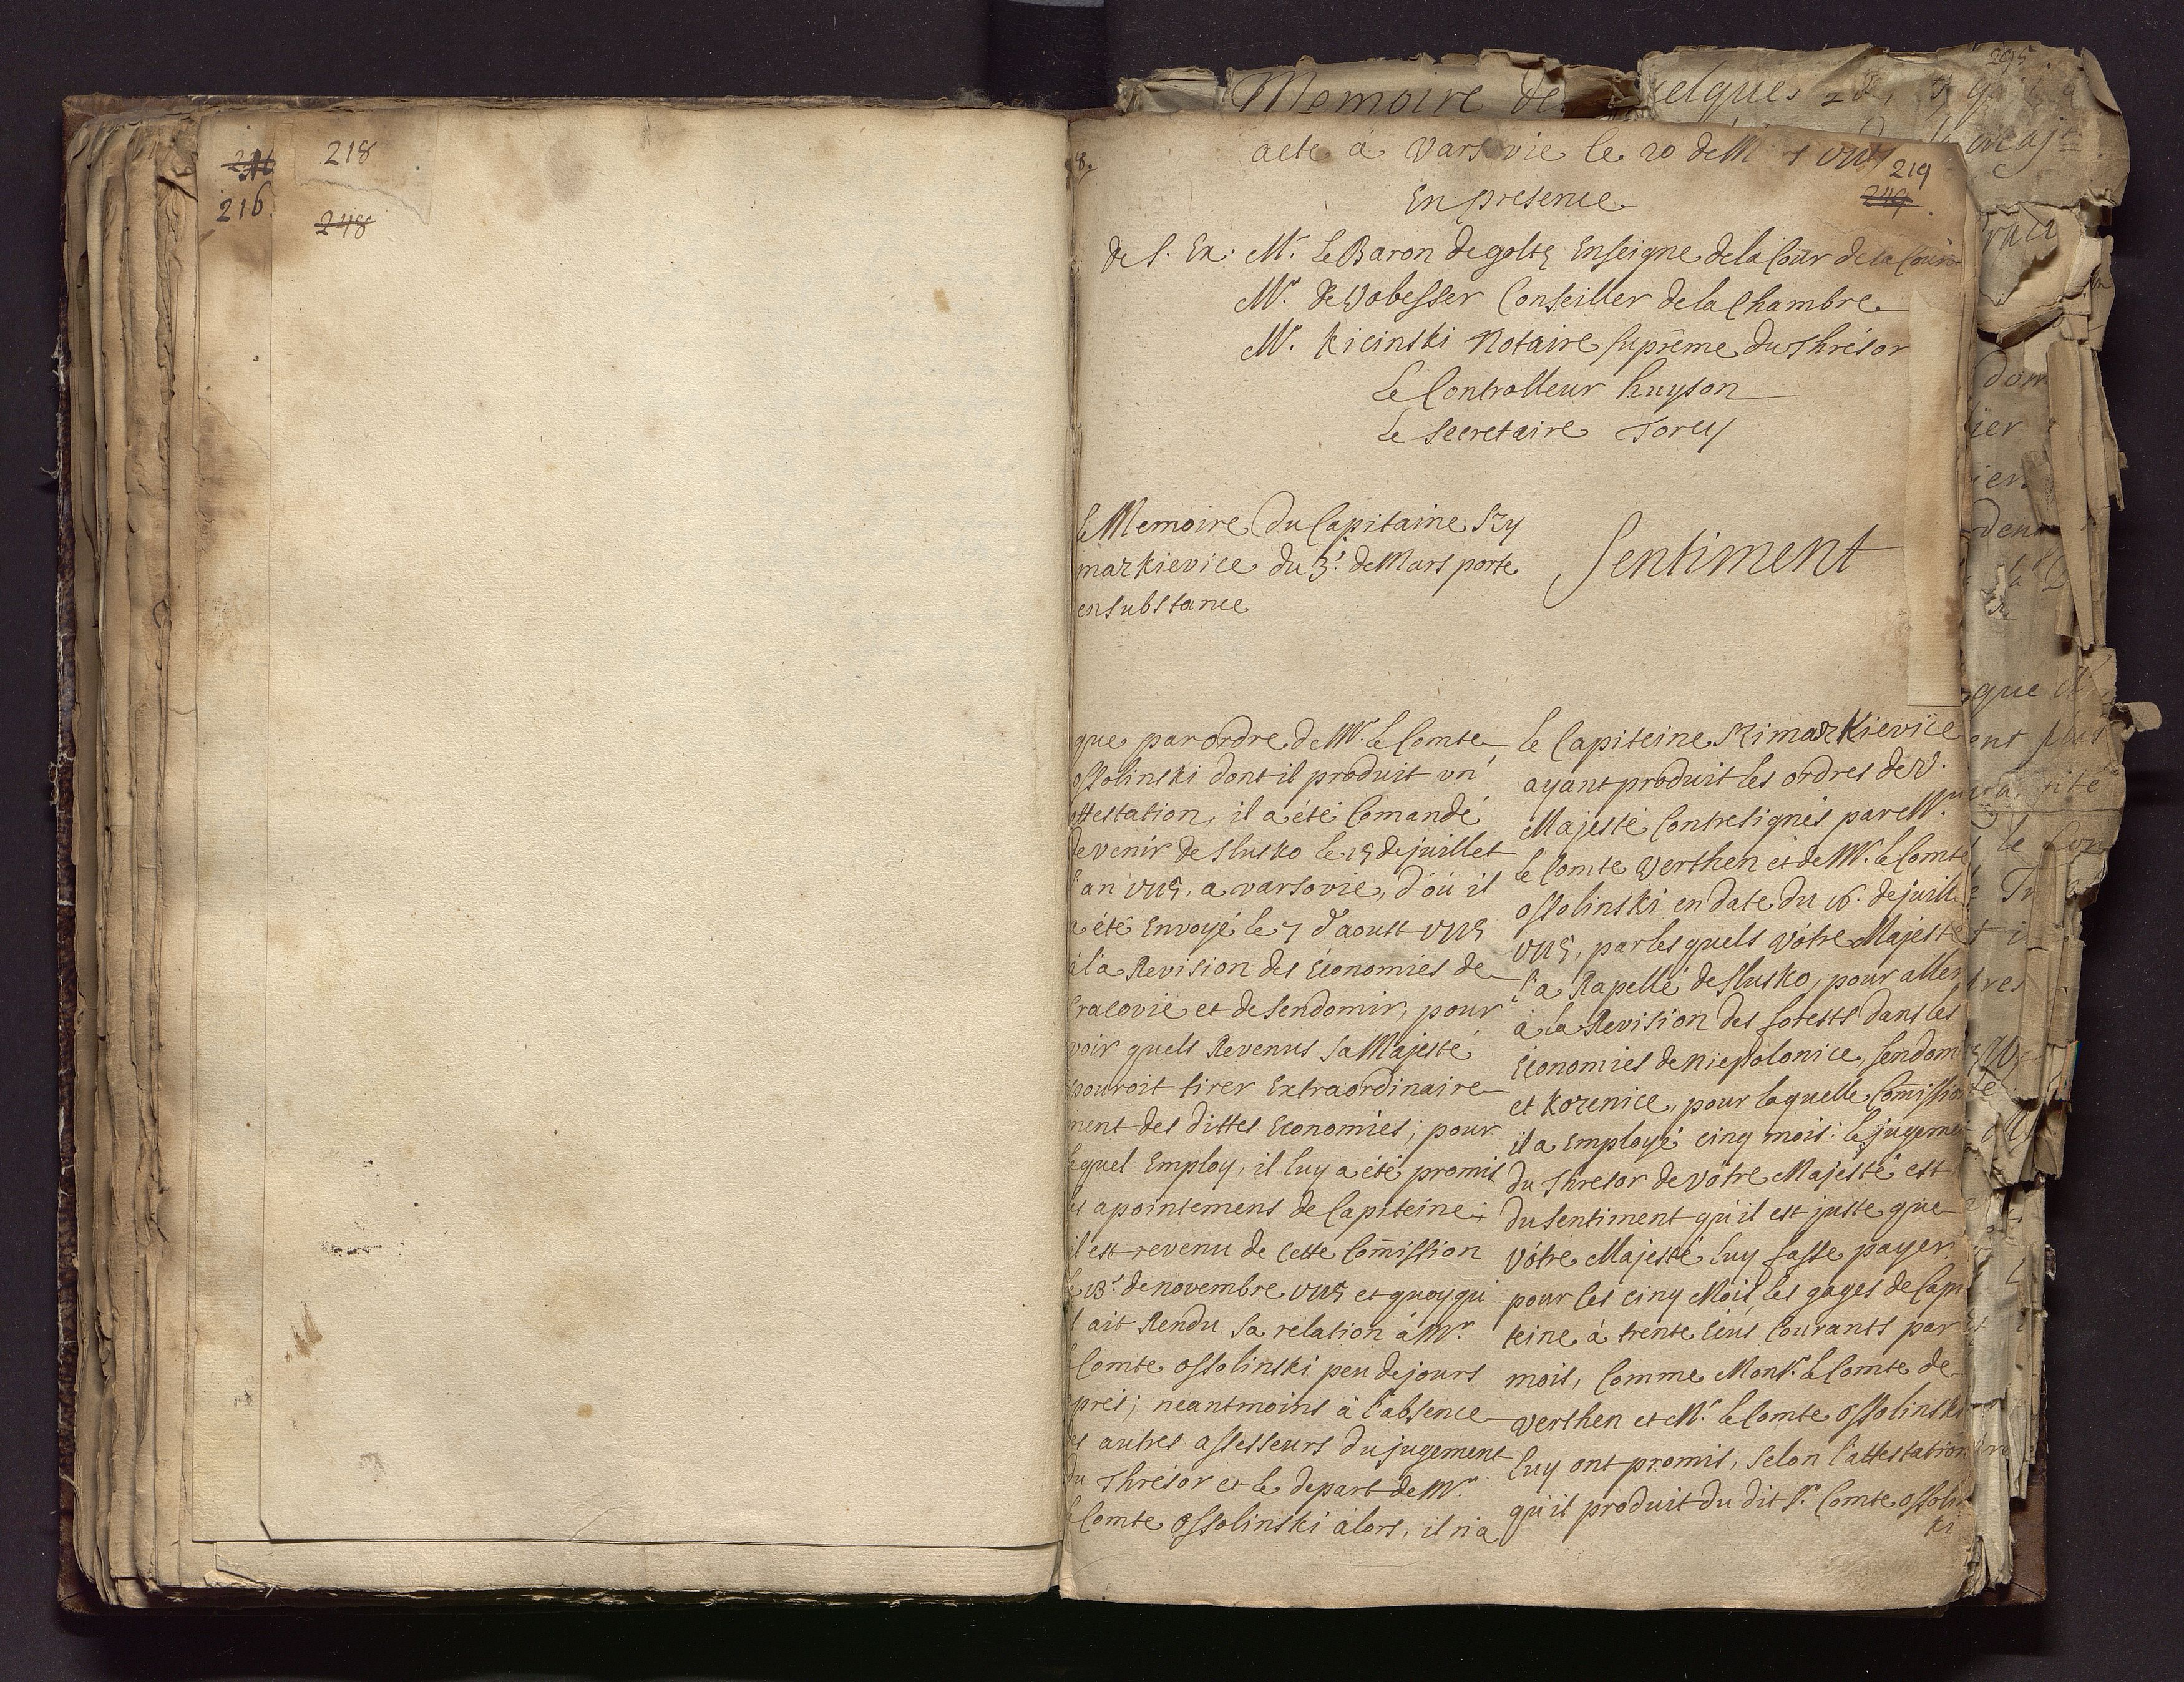 216
218
216.
248
295
Memoire de quelques
acte à Varsovie le 20 de
219
249
En presence
de S. Ex. Mr. Le Baron de goltz Enseigne de la Cour de la Cour
Mr. de Wobesser Conseiller de la Chambre
Mr. Kicinski Notaire suprême du Thrésor
Le Controlleur huyson
Le Secretaire Torcy
le Memoire du Capitaine Szy
markievice du 3e. de Mars porte
en substance
Sentiment
que par ordre de Mr. le Comte
Ossolinski dont il produit un
attestation, il a été Comandé
de venir de Slusko le 19 de juillet
l'an 1715, a varsovie, d'où il
a été Envoyé le 7 d'aoust 1715
à la Revision des Economies de
Cracovie et de Sendomir, pour
voir quels Revenus Sa Majesté
pouroit tirer Extraordinaire
ment des dittes Economies; pour
lequel Employ, il luy a été promis
les apointemens de Capiteine;
il est revenu de cette Comission
le 13e. de novembre 1715 et quoy qu'i
l ait Rendu sa relation à Mr.
le Comte Ossolinski peu de jours
aprés; neantmoins à l'absence
des autres assesseurs du jugement
du Thrésor et le depart de Mr.
le Comte Ossolinski alors, il n'a
le Capiteine Szimarkievice
ayant produit les ordres de V.
Majesté Contresignés par Mr.
le Comte Werthen et de Mr. le Comte
Ossolinski en date du 16. de juill.
1715, par les quels Vôtre Majesté
l'a Rapellé de Slusko, pour aller
à la Revision des forests dans les
Economies de Niepolonice, Sendom
et Kozenice, pour laquelle Comission
il a Employé cinq mois: le jugemen
du Thresor de Vôtre Majesté est
du Sentiment qu'il est juste que
Vôtre Majesté luy fasse payer
pour les cinq Mois les gages de Capi
teine à trente Ecus Courants par
mois, Comme Monsr. le Comte de
Werthen et Mr. le Comte Ossolinski
luy ont promis, Selon l'attestation
qu'il produit du dit Sr. Comte Ossolins
ki